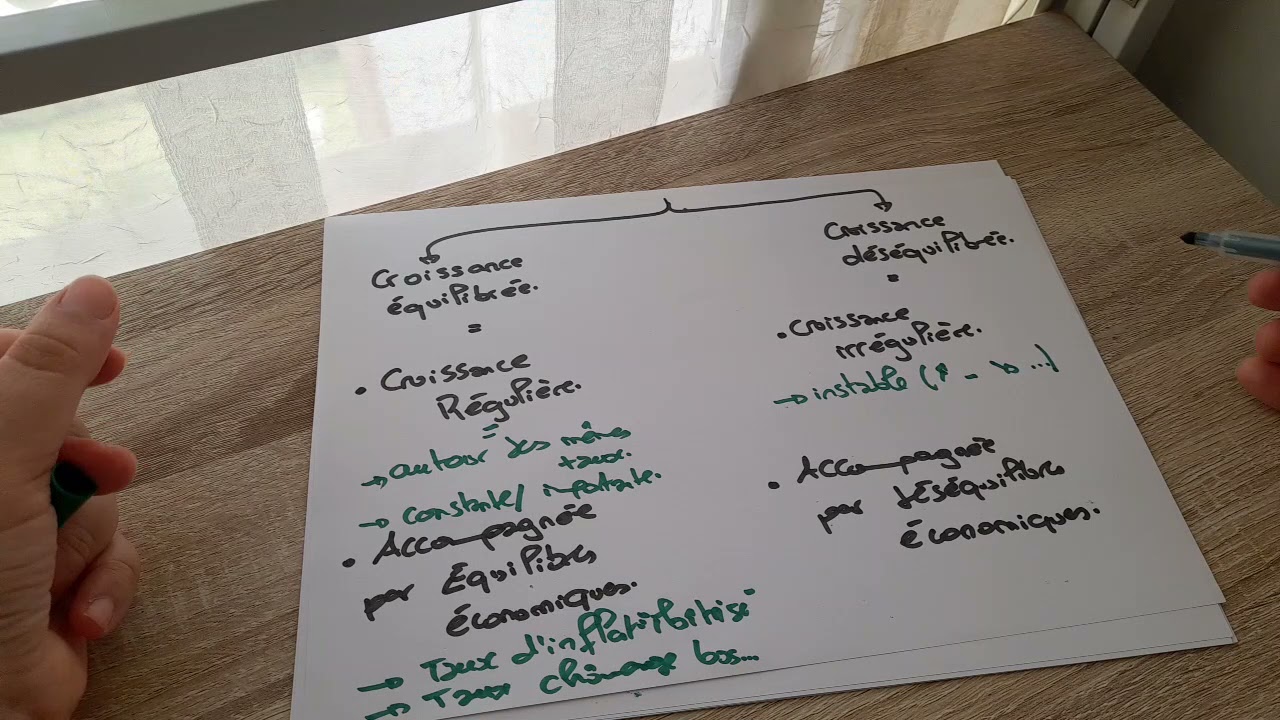 Croissance
équilibrée.
=
• Croissance
Régulière.
=
→ autour des mêmes
taux.
→ constante/ importante.
• Accompagnée
par Équilibres
économiques.
→ Taux d'inflati
→ Taux chômage bas...
Croissance
déséquilibrée.
=
• Croissance
irrégulière.
→ instable (↑ = ↘ ...)
• Accompagnée
par déséquilibres
économiques.